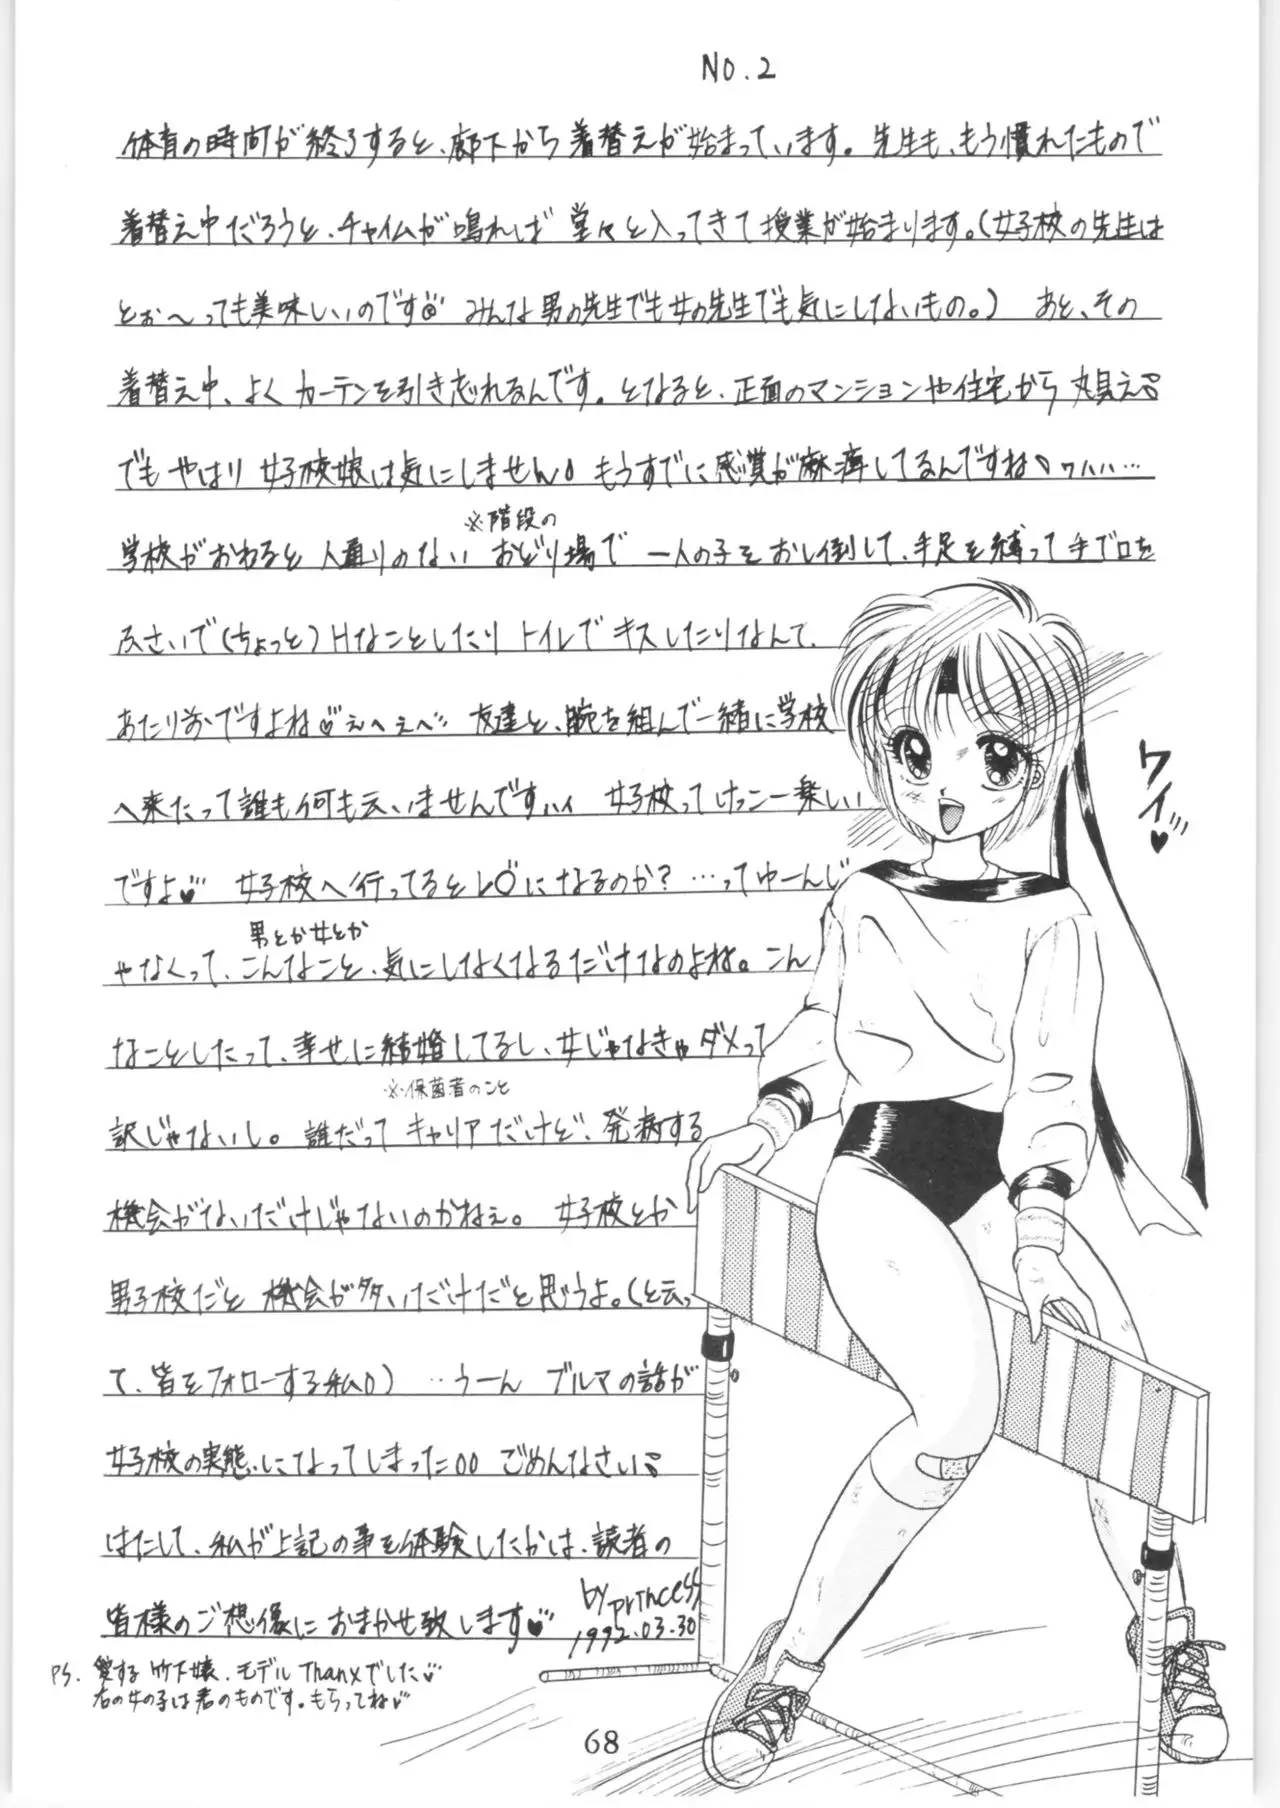 NO.2
体育の時間が終了すると、廊下から着替えが始まっています。先生も、もう慣れたもので
着替え中だろうと、チャイムが鳴れば堂々と入ってきて授業が始まります。(女子校の先生は
とぉ〜っても美味しいのです みんな男の先生でも女の先生でも気にしないもの。) あと、その
着替え中、よくカーテンを引き忘れるんです。となると、正面のマンションや住宅から丸見え
でもやはり女子校娘は気にしません もうすでに感覚が麻痺してるんですね ワハハ…
※階段の
学校がおわると人通りのないおどり場で一人の子をおし倒して、手足を縛って手で口を
ふさいで(ちょっと)Hなことしたりトイレでキスしたりなんて、
あたり前ですよね♡えへえへ 友達と、腕を組んで一緒に学校
へ来たって誰も何も云いませんですハイ 女子校ってけっこー楽しい
ですよ♡ 女子校へ行ってるとレ○になるのか?…ってゆーんじ
男とか女とか
ゃなくって、こんなこと、気にしなくなるだけなのよね。こん
なことしたって、幸せに結婚してるし、女じゃなきゃダメって
※保菌者のこと
訳じゃないし。誰だってキャリアだけど、発病する
機会がないだけじゃないのかねぇ。女子校とか
男子校だと機会が多いだけだと思うよ。(と云っ
て、皆をフォローする私) …うーん ブルマの話が
女子校の実態になってしまった ごめんなさい
はたして、私が上記の事を体験したかは、読者の
皆様のご想像におまかせ致します♡
by princess
1992.03.30
PS. 愛する竹下嬢、モデルThanxでした
右の女の子は君のものです。もらってね♡
ワイ♥
68